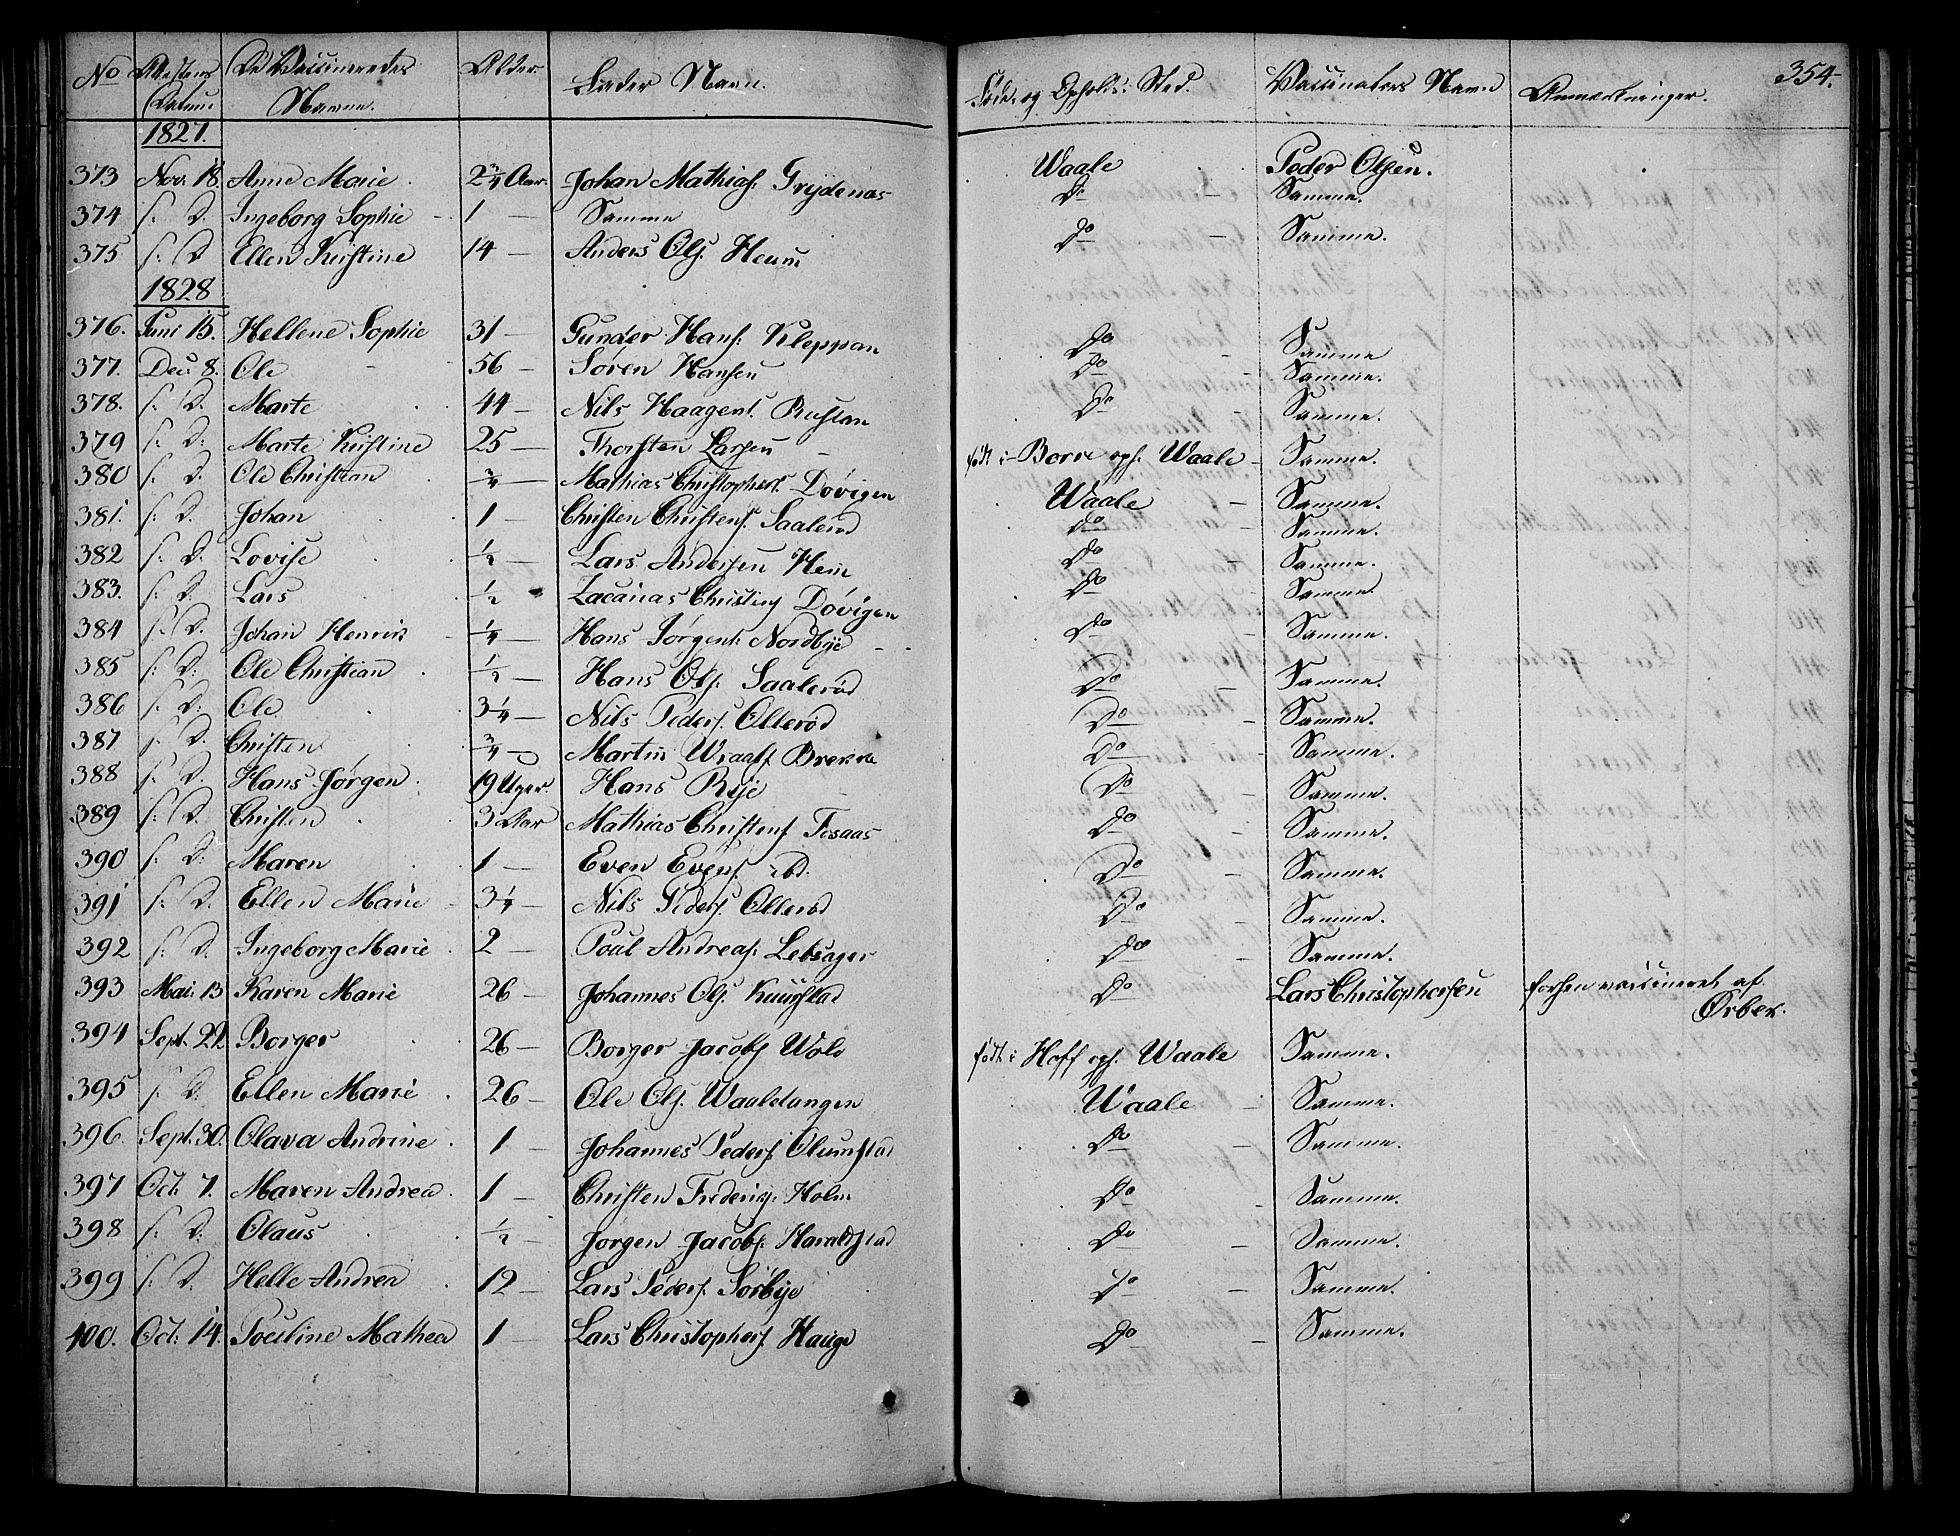 354.
No Attestens Datum De Vaccineredes Navne. Alder Fader Navn. Føde og Opholds: Sted. Vaccinators Navn Anmærkninger.
1827.
373 Nov. 18. Anne Marie 2¾ Aar. Johan Mathias: Waale Peder Olsen.
374 s: D. Ingeborg Sophie 1 — Samme Do Samme.
375 s: D Ellen Kirstine 14 — Anders Ols: Heum Do Samme.
1828
376. Juni 15. Hellene Sophie 31 — Gunder Hans: Kleppan Do Samme
377. Dec: 8. Ole 56 — Søren Hansen Do Samme.
378. s: D. Marte 44 — Nils Haagens. Rustan Do Samme.
379 s: D: Marte Kirstine 25 — Thorsten Larsen født i Borre oph. Waale Samme.
380 s: D. Ole Christian ¾ — Mathias Christophers. Døvigen Waale Samme.
381. s: D. Johan 1 — Christen Christens. Saalerød Do Samme.
382 s: D. Lovise ½ — Lars Andersen Hem Do Samme.
383. s: D. Lars ½ Zacarias Christens Døvigen Do Samme.
384 s: D. Johan Henrik ¼ — Hans Jørgens: Nordbye Do Samme.
385 s: D: Ole Christian ½ — Hans Ols: Saalerød Do Samme.
386 s: D: Ole 3¼ — Nils Peders. Ollerød Do Samme.
387 s: D. Christen ¾ — Martin Do Samme.
388 s: D. Hans Jørgen 19 Uger. Hans Rije Do Samme.
389 s: D. Christen 3 Aar Mathias Christens Do Samme.
390 s: D: Maren 1 — Even Evens. ibd: Do Samme.
391 s: D. Ellen Marie 3¼ — Nils Peders. Ollerød Do Samme.
392 s: D. Ingeborg Marie 2 — Poul Andreas: Lebsager Do Samme.
393 Mai: 13 Karen Marie 26 — Johannes Ols. Do Lars Christophersen forhen vaccineret af Ørbek.
394 Sept. 22. Borger 26 — Borger Jacobs Wold født i Hoff oph. Waale Samme.
395 s: D: Ellen Marie 26 — Ole Ols. Waaletangen Waale Samme.
396. Sept. 30. Olava Andrine 1 — Johannes Peders. Olumstad Do Samme.
397 Oct: 7. Maren Andrea 1 — Christen Frideriks: Holm Do Samme.
398 s: D: Olaus ½ — Jørgen Jacobs: Haraldstad Do Samme.
399 s: D. Helle Andrea 12 — Lars Peders. Sørbye Do Samme.
400. Oct: 14. Pouline Mathea 1 — Lars Christophers. Hauge Do Samme.